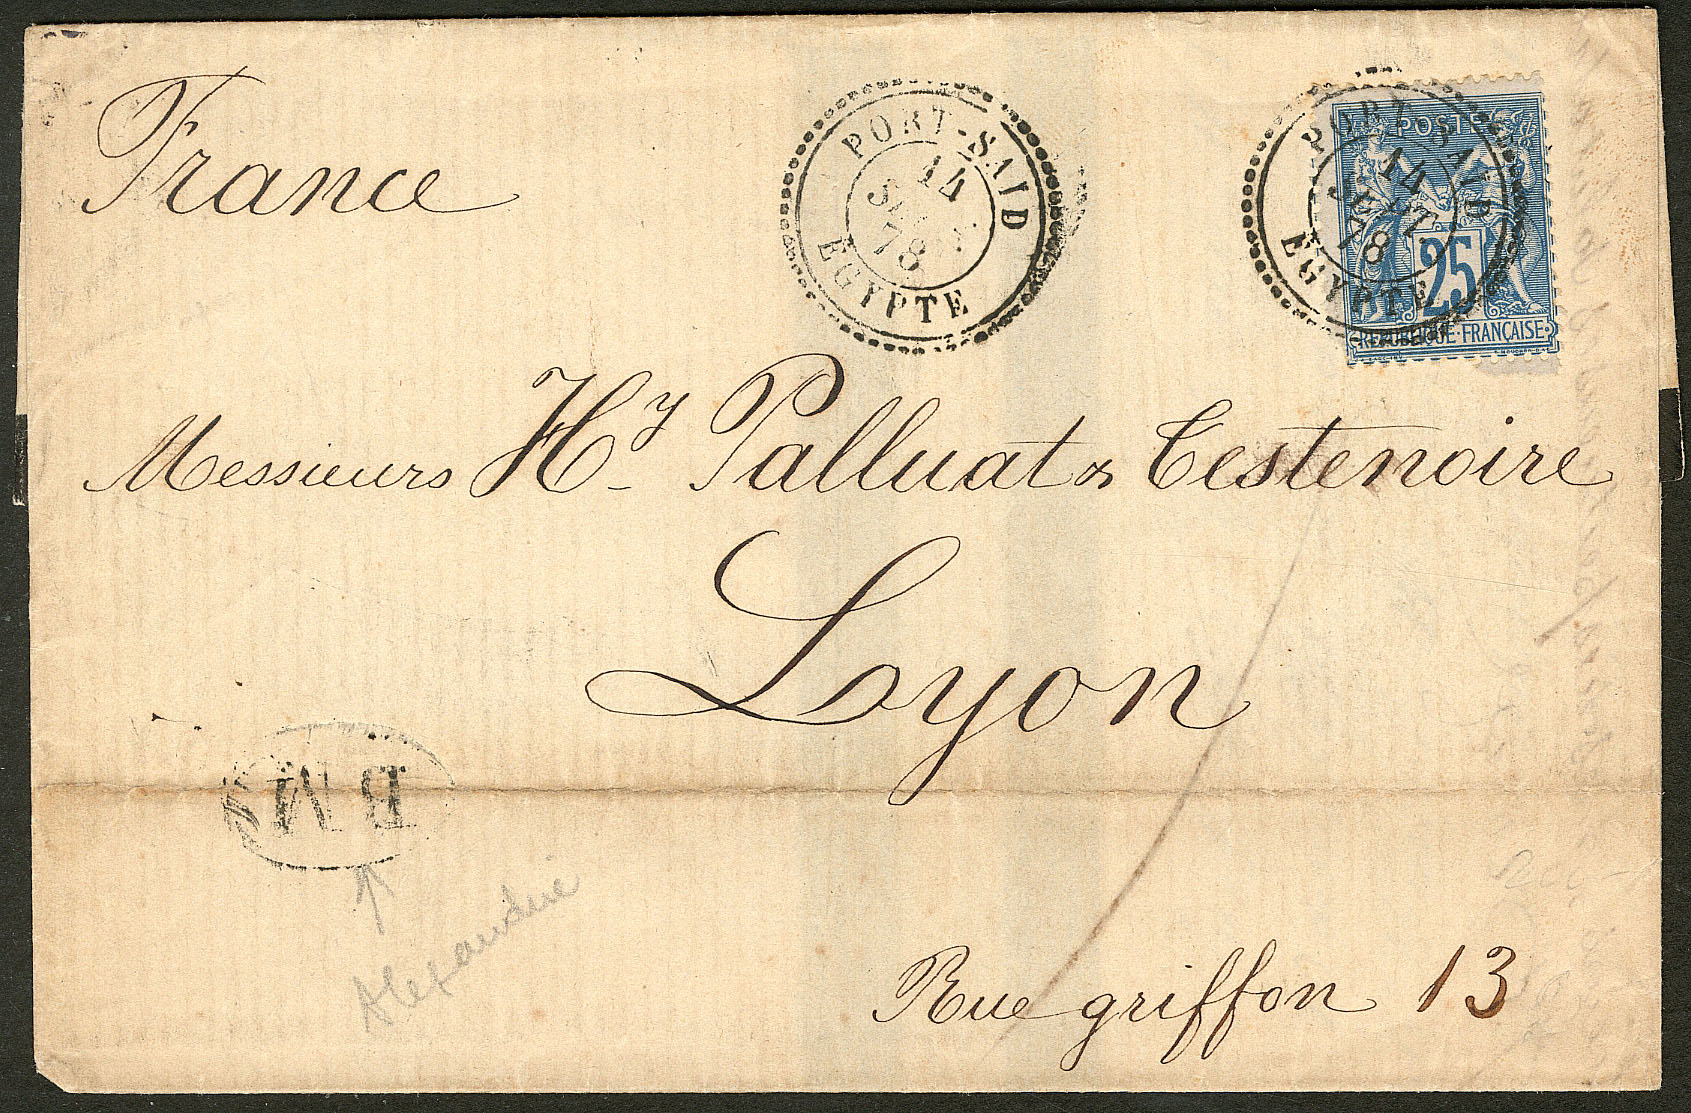 France
PORT-SAID
14
SEPT
78
EGYPTE
PORT-SAID
14
SEPT
78
EGYPTE
POSTES
25
REPUBLIQUE·FRANÇAISE·
Messieurs Hy Palluat & Testenoire
Lyon
BM
Alexandrie
Rue griffon 13